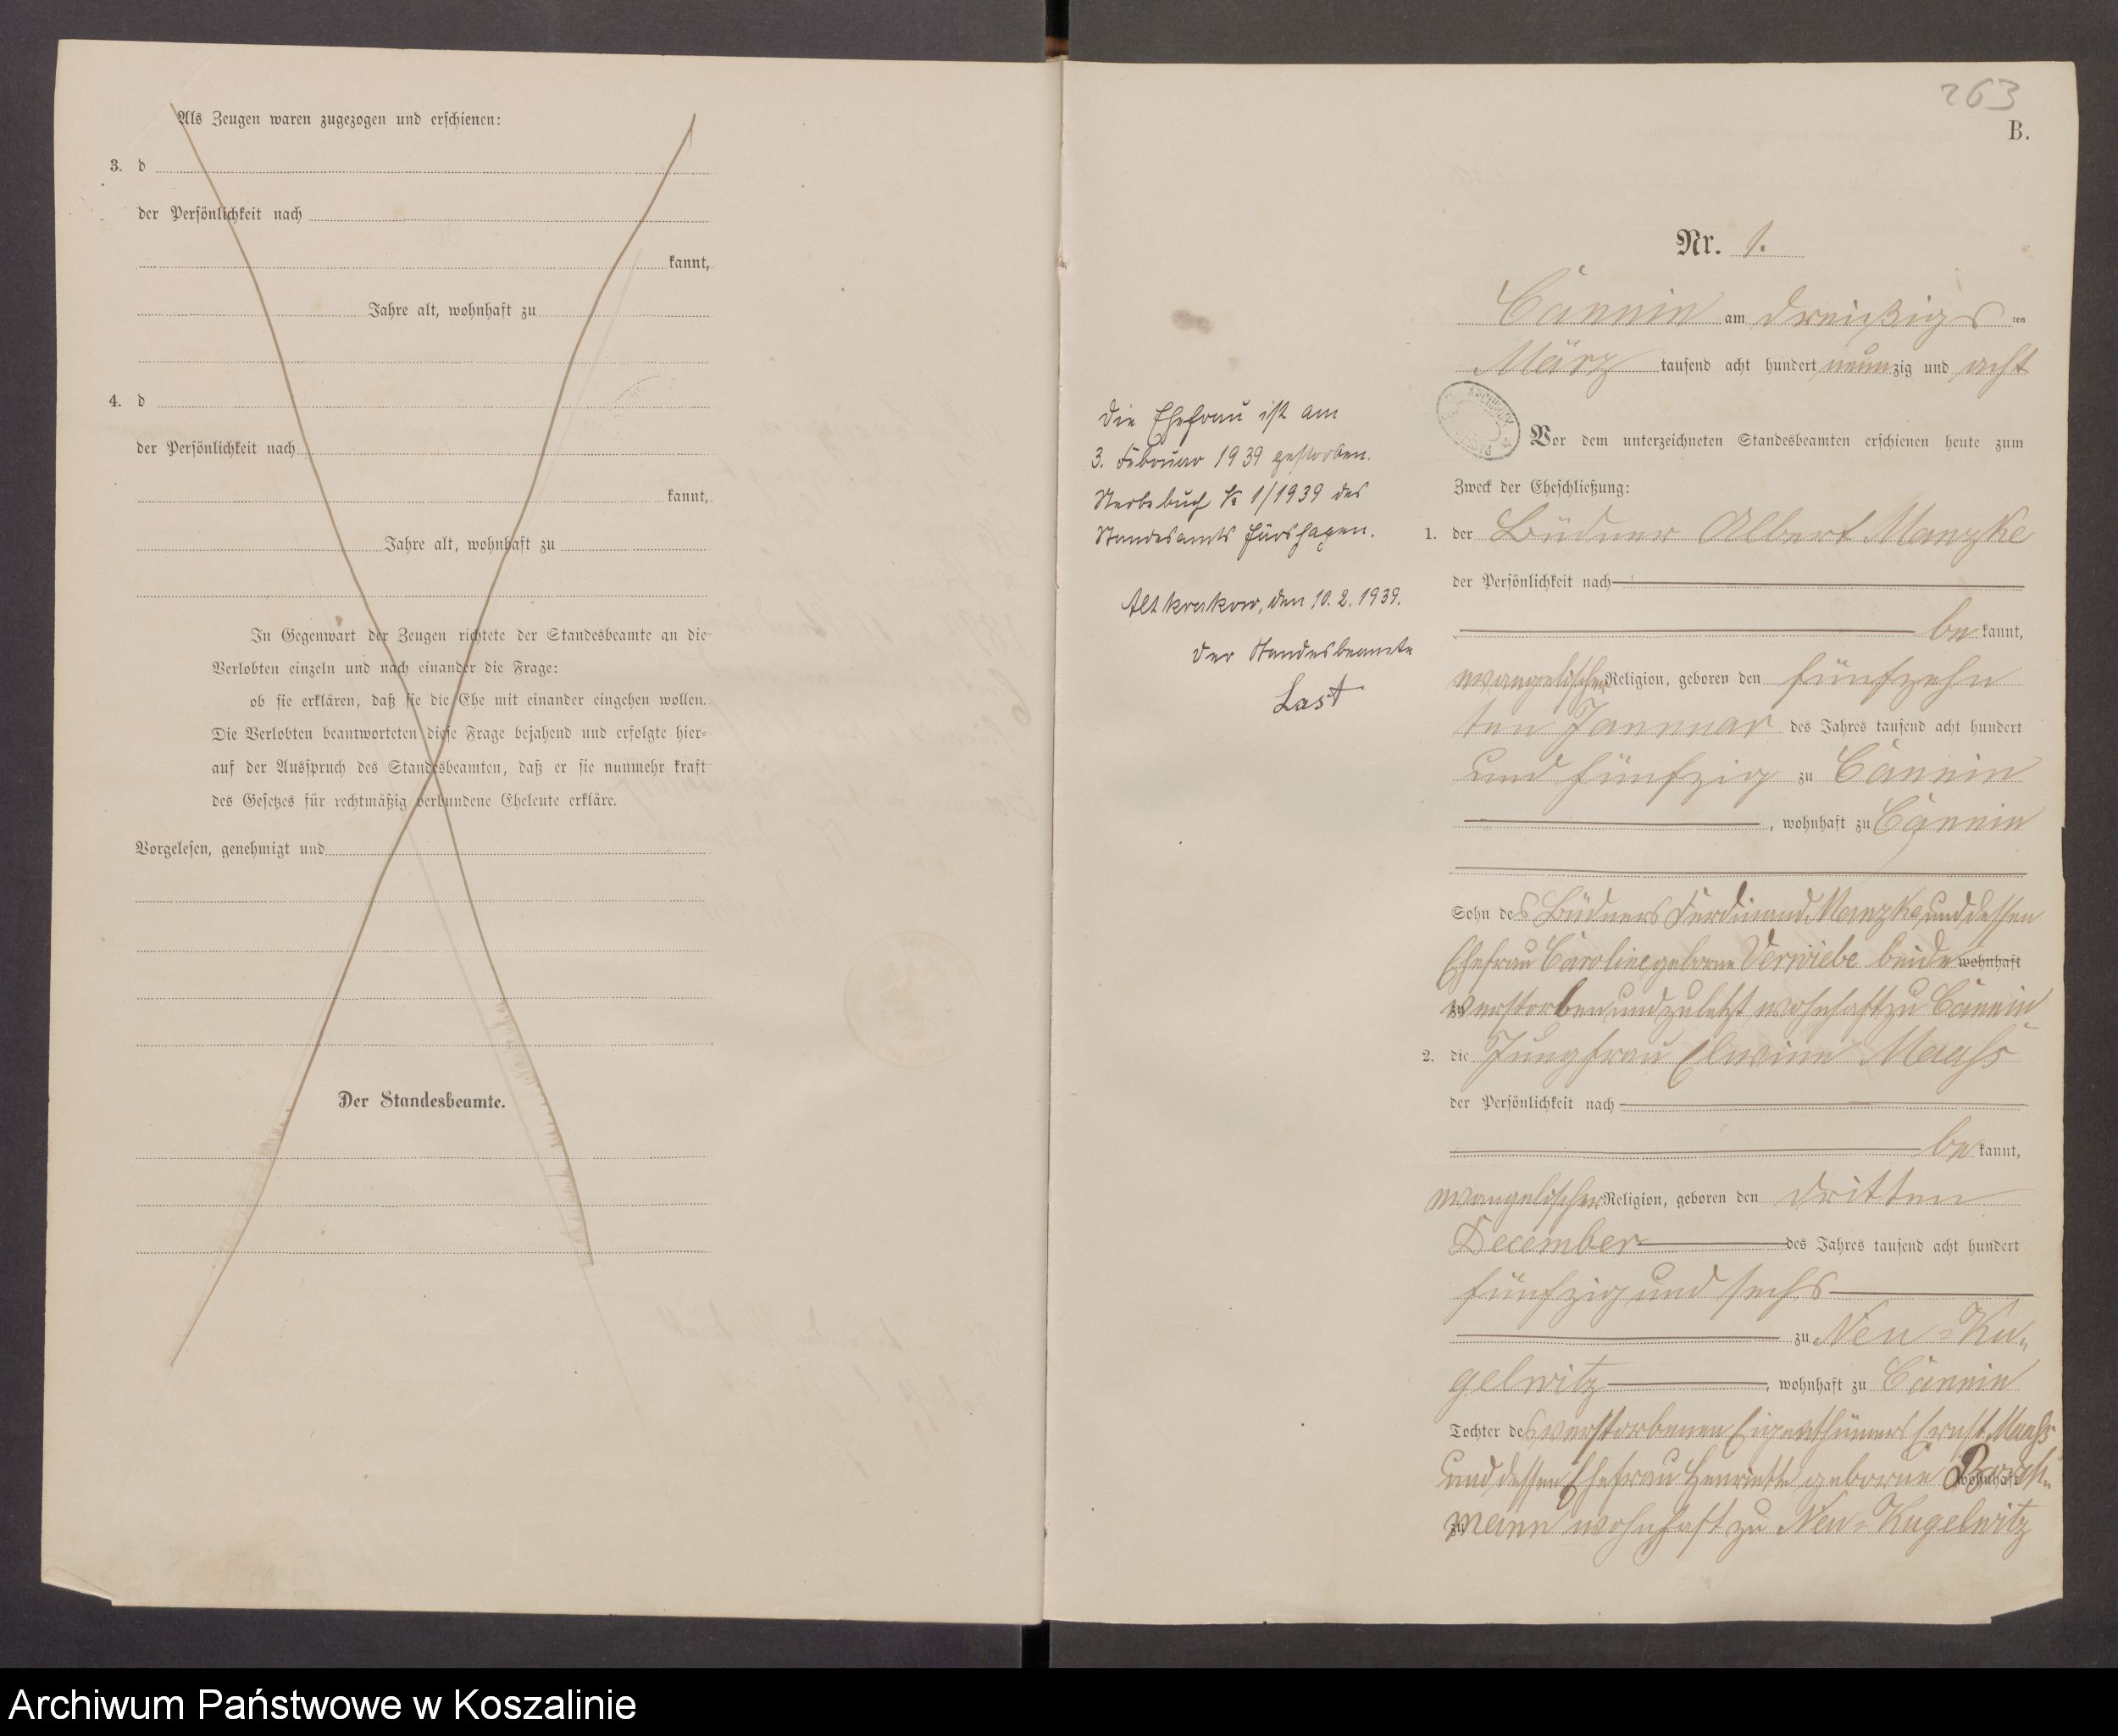 Als Zeugen waren zugezogen und erschienen:
3. d
der Persönlichkeit nach
kannt,
Jahre alt, wohnhaft zu
4. d
der Persönlichkeit nach
kannt,
Jahre alt, wohnhaft zu
In Gegenwart der Zeugen richtete der Standesbeamte an die
Verlobten einzeln und nach einander die Frage:
ob sie erklären, daß sie die Ehe mit einander eingehen wollen.
Die Verlobten beantworteten diese Frage bejahend und erfolgte hier-
auf der Ausspruch des Standesbeamten, daß er sie nunmehr kraft
des Gesetzes für rechtmäßig verbundene Eheleute erkläre.
Vorgelesen, genehmigt und
Der Standesbeamte.
263
B.
Nr. 1.
Cannin am dreißigs ten
März tausend acht hundert neunzig und acht
Vor dem unterzeichneten Standesbeamten erschienen heute zum
Zweck der Eheschließung:
1. der Büdner Albert Manzke
der Persönlichkeit nach
be kannt,
evangelischer Religion, geboren den fünfzehn
ten Jannuar des Jahres tausend acht hundert
und fünfzig zu Cannin
, wohnhaft zu Cannin
Sohn des Büdners Ferdinand Manzke und dessen
Ehefrau Caroline geborne Verwiebe beide wohnhaft
zu verstorben und zuletzt wohnhaft zu Cannin
2. die Jungfrau Elwine Maaß
der Persönlichkeit nach
be kannt,
evangelischer Religion, geboren den dritten
December des Jahres tausend acht hundert
fünfzig und sechs
zu Neu-Ku-
gelwitz, wohnhaft zu Cannin
Tochter des verstorbenen Eigenthümers Ernst Maaß
und dessen Ehefrau Henriette geborne wohnhaft
zu mann wohnhaft zu Neu-Kugelwitz
Die Ehefrau ist am
3. Februar 1939 gestorben.
Sterbebuch Nr 1/1939 des
Standesamts
Altkrakow, den 10.2.1939.
Der Standesbeamte
Last
Archiwum Państwowe w Koszalinie